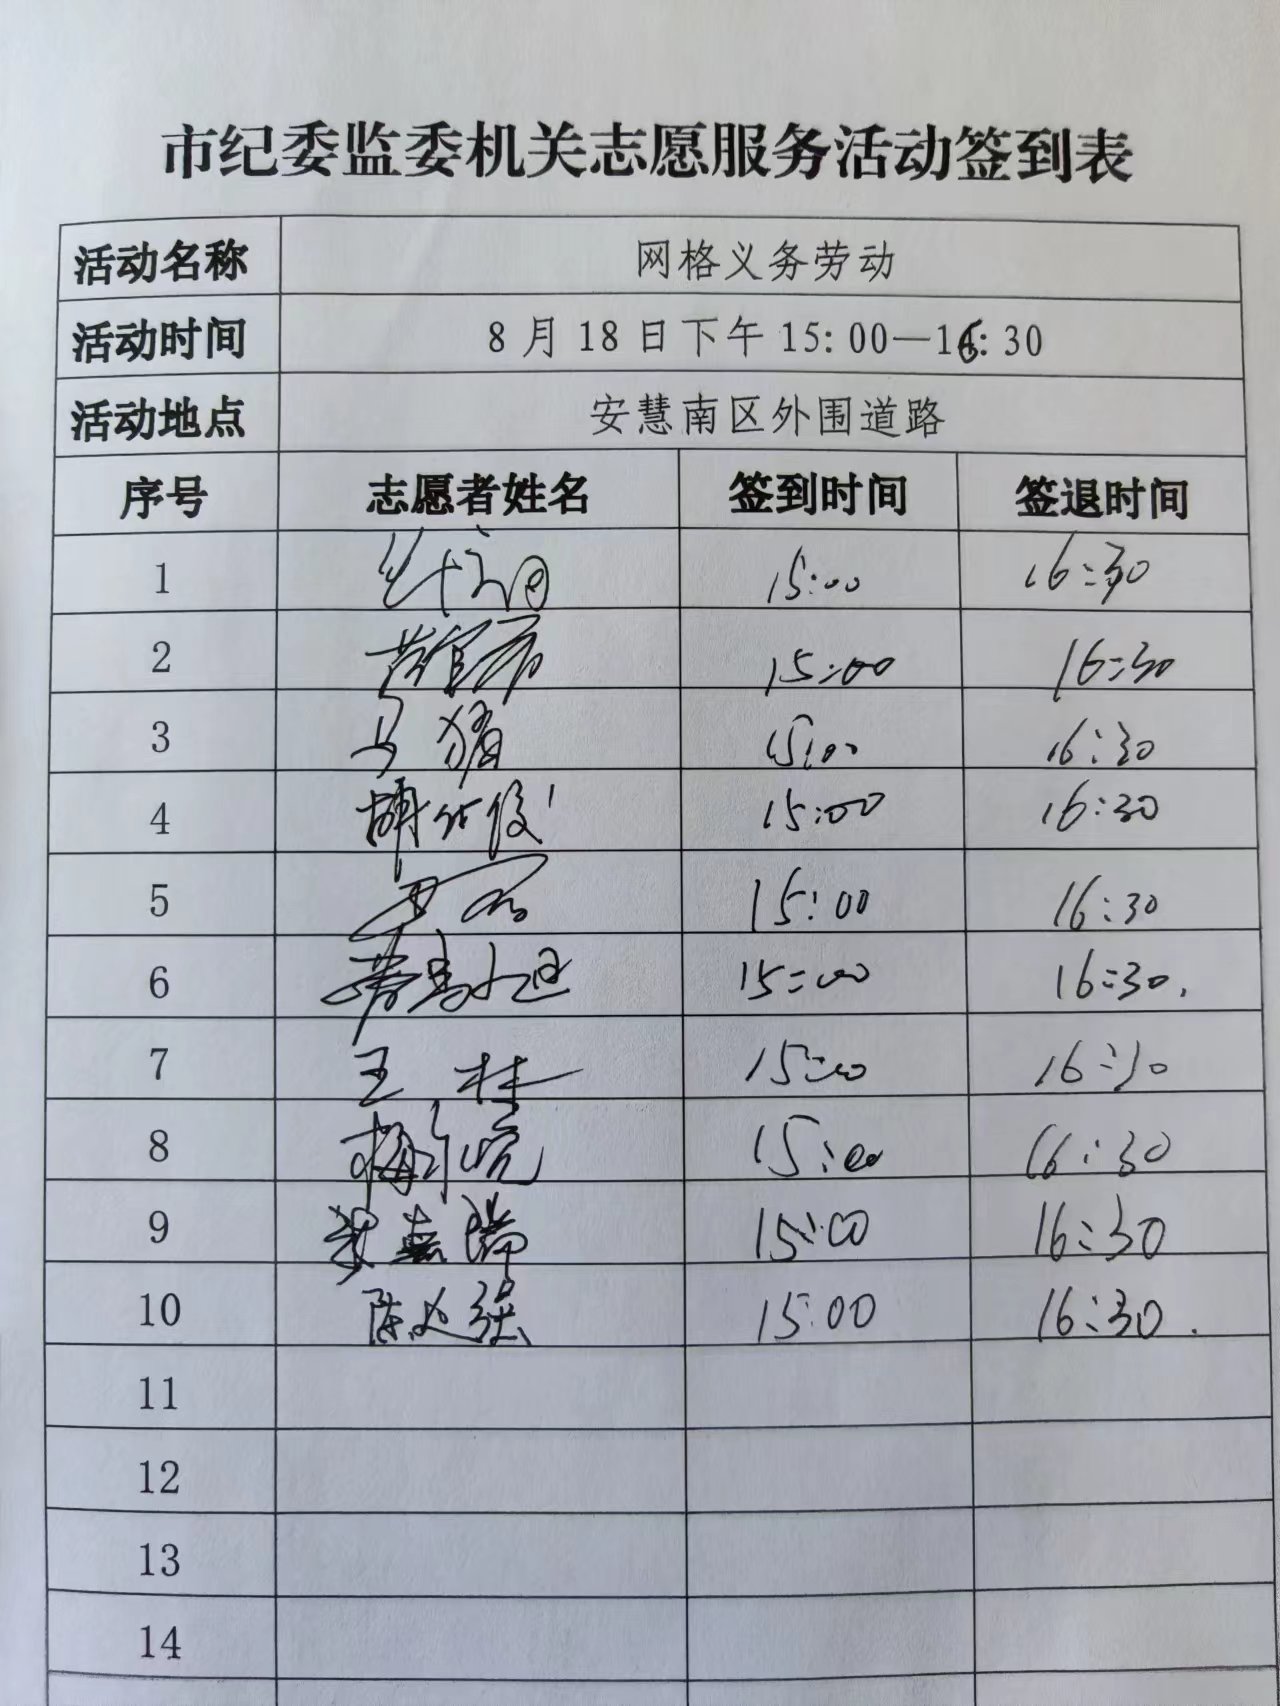 市纪委监委机关志愿服务活动签到表
活动名称 网格义务劳动
活动时间 8月18日下午15:00—16:30
活动地点 安慧南区外围道路
序号 志愿者姓名 签到时间 签退时间
1 15:00 16:30
2 15:00 16:30
3 马 15:00 16:30
4 15:00 16:30
5 15:00 16:30
6 15:00 16:30.
7 王 林 15:00 16:30
8 梅 15:00 16:30
9 嘉瑞 15:00 16:30
10 陈 强 15:00 16:30.
11
12
13
14